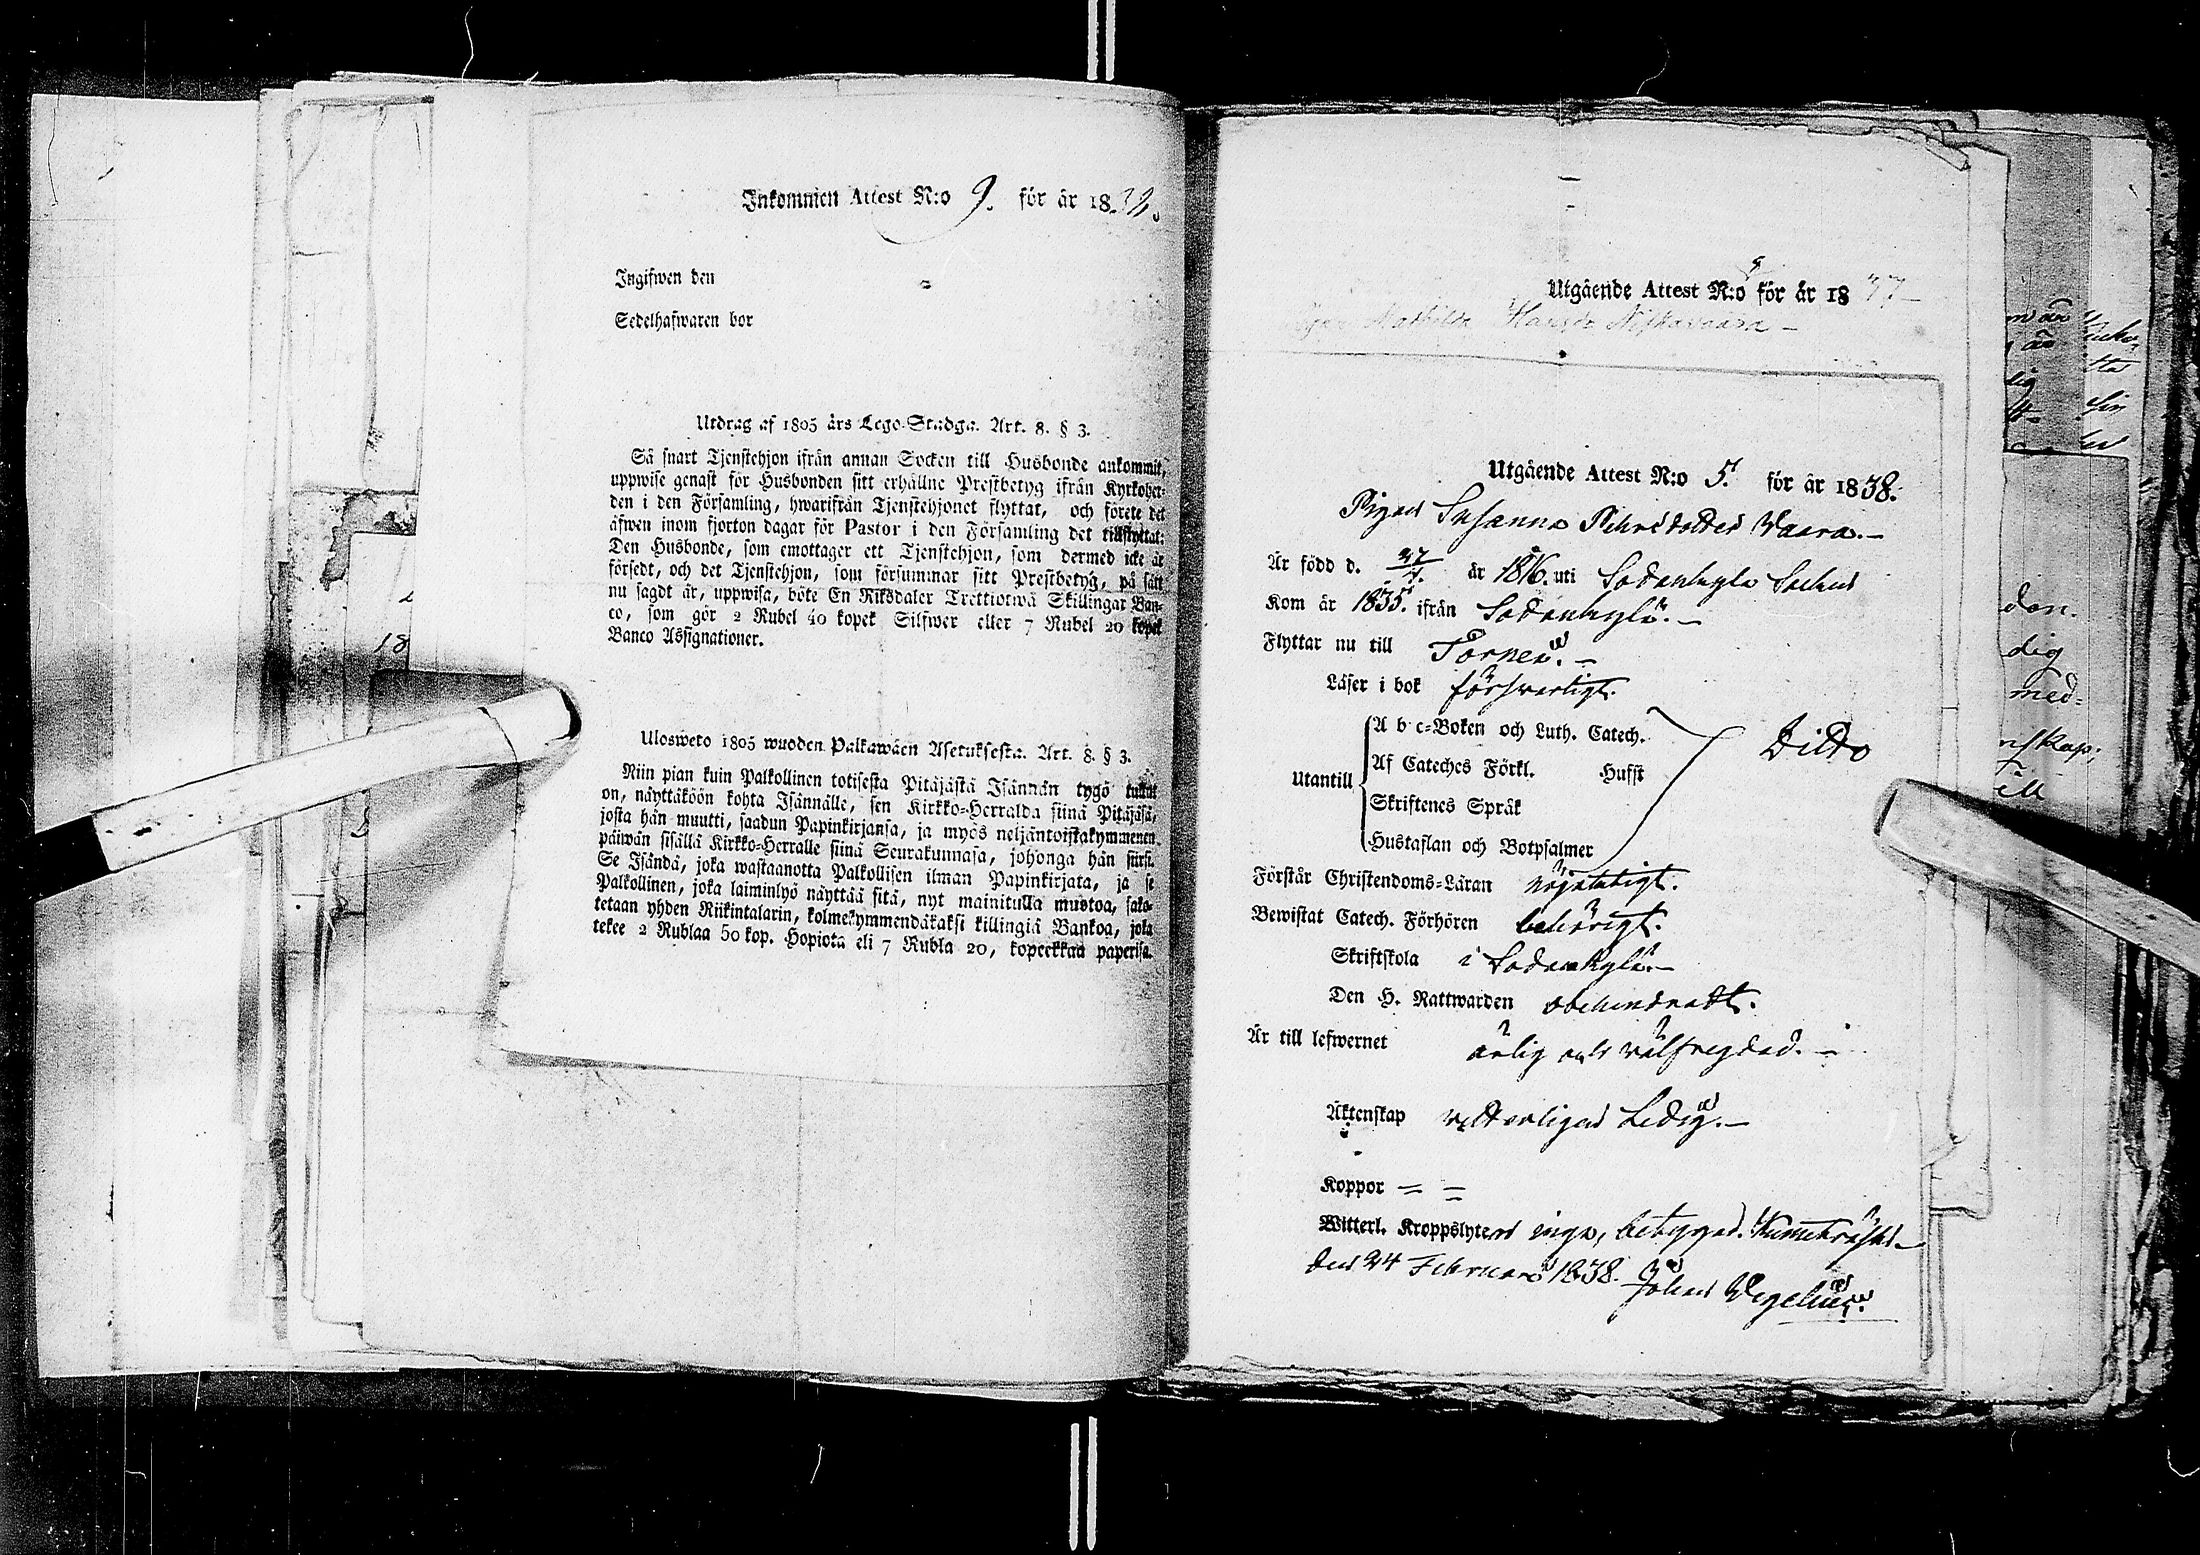 Inkommen Attest N:o 9. för år 18
Ingifwen den
Sedelhafwaren bor
Utdrag af 1805 års Lego-Stadga. Art. 8. § 3.
Så snart Tjenstehjon ifrån annan Socken till Husbonde ankommit,
uppwise genast för Husbonden sitt erhållne Prestbetyg ifrån Kyrkoher-
den i den Församling, hwarifrån Tjenstehjonet flyttat, och förete det
äfwen inom fjorton dagar för Pastor i den Församling det tillflyttat:
Den Husbonde, som emottager ett Tjenstehjon, som dermed icke är
försedt, och det Tjenstehjon, som försummar sitt Prestbetyg, på sätt
nu sagdt är, uppwisa, böte En Riksdaler Trettiotwå Skillingar Ban-
co, som gör 2 Rubel 40 kopek Silfwer eller 7 Rubel 20 kopek
Banco Assignationer.
Ulosweto 1805 wuoden Palkawäen Asetuksesta. Art. 8. § 3.
Niin pian kuin Palkollinen totisesta Pitäjästä Isännän tygö tullut
on, näyttäköön kohta Isännälle, sen Kirkko-Herralda siinä Pitäjäsä,
josta hän muutti, saadun Papinkirjansa, ja myös neljäntoistakymmenen
päiwän sisällä Kirkko-Herralle siinä Seurakunnasa, johonga hän siirsi.
Se Isändä, joka wastaanotta Palkollisen ilman Papinkirjata, ja se
Palkollinen, joka laiminlyö näyttää sitä, nyt mainitulla muotoa, sako-
tetaan yhden Riikintalarin, kolmekymmendäkaksi killingiä Bankoa, joka
tekee 2 Rublaa 50 kop. Hopiota eli 7 Rubla 20, kopeekkaa paperisa.
18
Utgående Attest N:o för år 18
Mathilda Hansdr Niskavaara –
Utgående Attest N:o 5. för år 1838.
Pigan Susanna Pehrsdotter Vaara.–
Är född d. 27/7. år 1816. uti Sodankylä Socken
Kom år 1835. ifrån Sodankylä.–
Flyttar nu till Torneå.–
Läser i bok försvarligt.
Utantill
A b c-Boken och Luth. Catech.
Af Cateches Förkl. Hufst
Skriftenes Språk
Hustaflan och Botpsalmer
Ditto
Förstår Christendoms-Läran nöjaktigt.
Bewistat Catech. Förhören behörigt.
Skriftskola i Sodankylä.–
Den H. Nattwarden obehindradt.
Är till lefwernet ärlig och välfregdad.–
Äktenskap vetterligen Ledig.–
Koppor – =
Witterl. Kroppslyten inga, betygar. Kemiträsk
den 24 Februari 1838. Johan Wegelius.
dan.
dig
med-
nskap;
till